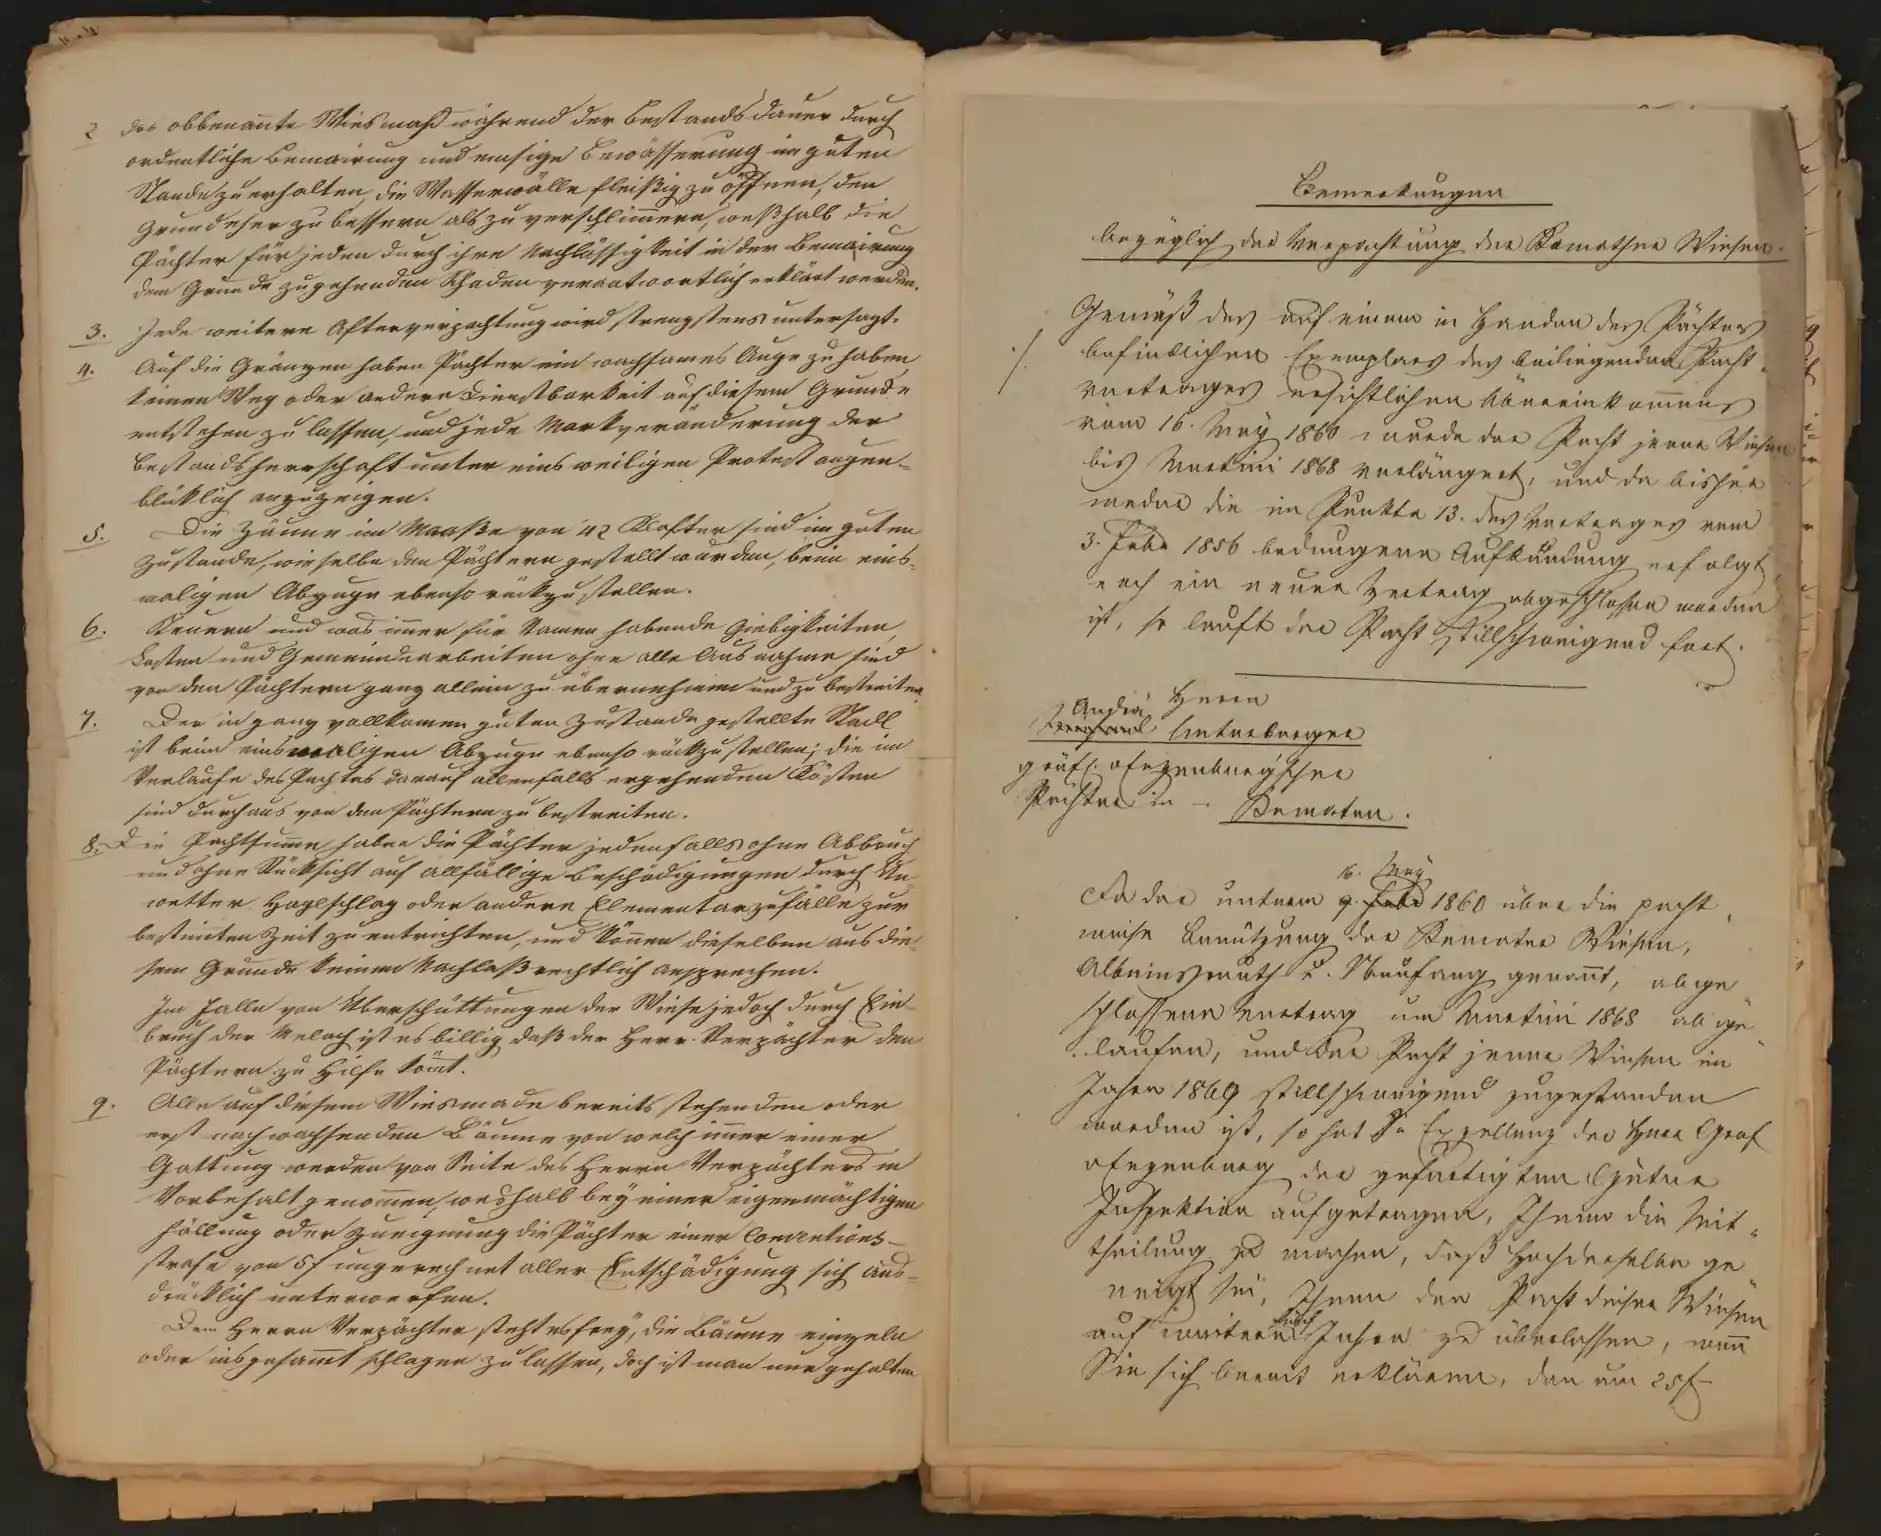 2 das obbenannte Wiesmahd während der Bestandsdauer durch
ordentliche Bemairung und emsige Bewässerung in guten
Stande zu erhalten, die Wasserwälle fleißig zu öffnen, den
Grund eher zu bessern als zu verschlimmern, weßhalb die
Pächter für jeden durch ihre Nachlässigkeit in der Bemairung
dem Grunde zugehenden Schaden verantwortlich erklärt werden.
3. Jede weitere Afterverpachtung wird strengstens untersagt.
4. Auf die Gränzen haben Pächter ein wachsames Auge zu haben,
keinen Weg oder andere Dienstbarkeit auf diesem Grunde
entstehen zu lassen, und jede Markveränderung der
Bestandsherrschaft unter einsweiligen Protest augen-
blicklich anzuzeigen.
5. Die Zäune im Maaße von 42 Klafter sind im guten
Zustande, wie selbe den Pächtern gestellt wurden, beim eins-
maligen Abzuge ebenso rückzustellen.
6. Steuern und was immer für Namen habende Giebigkeiten,
Lasten und Gemeindearbeiten ohne alle Ausnahme sind
von den Pächtern ganz allein zu übernehmen und zu bestreiten
7. Der in ganz vollkomen guten Zustande gestellte Stadl
ist beim einsmaligen Abzuge ebenso rückzustellen; die im
Verlaufe des Pachtes darauf allenfalls ergehenden Kösten
sind durchaus von den Pächtern zu bestreiten.
8. Die Pachtsumme haben die Pächter jedenfalls ohne Abbruch
und ohne Rücksicht auf allfällige Beschädigungen durch Un-
wetter Hagelschlag oder andere Elementarzufälle zur
bestimten Zeit zu entrichten, und können dieselben aus die-
sem Grunde keinen Nachlaß rechtlich ansprechen.
Im Falle von Überschüttungen der Wiese jedoch durch Ein-
bruch der Melach ist es billig daß der Herr Verpächter den
Pächtern zu Hilfe kömt.
9. Alle auf diesem Wiesmade bereits stehenden oder
erst nachwachsenden Bäume von welch imer einer
Gattung werden von Seite des Herrn Verpächters in
Vorbehalt genommen, weshalb bey einer eigenmächtigen
Fällung oder Zueignung die Pächter einer Conventions-
strafe von 5 f ungerechnet aller Entschädigung sich aus-
drücklich unterwerfen.
Dem Herrn Verpächter steht es frey, die Bäume einzeln
oder insgesammt schlagen zu lassen, doch ist man nur gehalten
Bemerkungen
bezüglich der Verpachtung der Kematner Wiesen.
Gemäß des auf einem in Handen des Pächters
befindlichen Exemplars des beiliegenden Pacht
vertrages ersichtlichen Übereinkommens
vom 16. May 1860 wurde der Pacht jener Wiesen
bis Martini 1868 verlängert, und da bisher
weder die im Punkte 13. des Vertrages vom
3. Febr 1856 bedungene Aufkündung erfolgt,
noch ein neuer Vertrag abgeschlossen worden
ist, so lauft der Pacht stillschweigend fort.
Herrn
Andrä
Hinterberger
gräfl. v Enzenberg'scher
Pächter in
Kematen.
16. May
Da der unterm 9. Febr 1860 über die pacht
weise Benützung der Kematner Wiesen,
u. Neufang genannt, abge
schlossene Vertrag um Martini 1868 abge
laufen, und der Pacht jener Wiesen im
Jahre 1869 stillschweigend zugestanden
worden ist, so hat Se Exzellenz der Herr Graf
v Enzenberg der gefertigten Güter
Inspektion aufgetragen, Ihnen die Mit
theilung zu machen, daß Hochderselbe ge
neigt sei, Ihnen den Pacht dieser Wiesen
auf weitere Jahre zu überlassen, wenn
Sie sich bereit erklären, den um 25 f